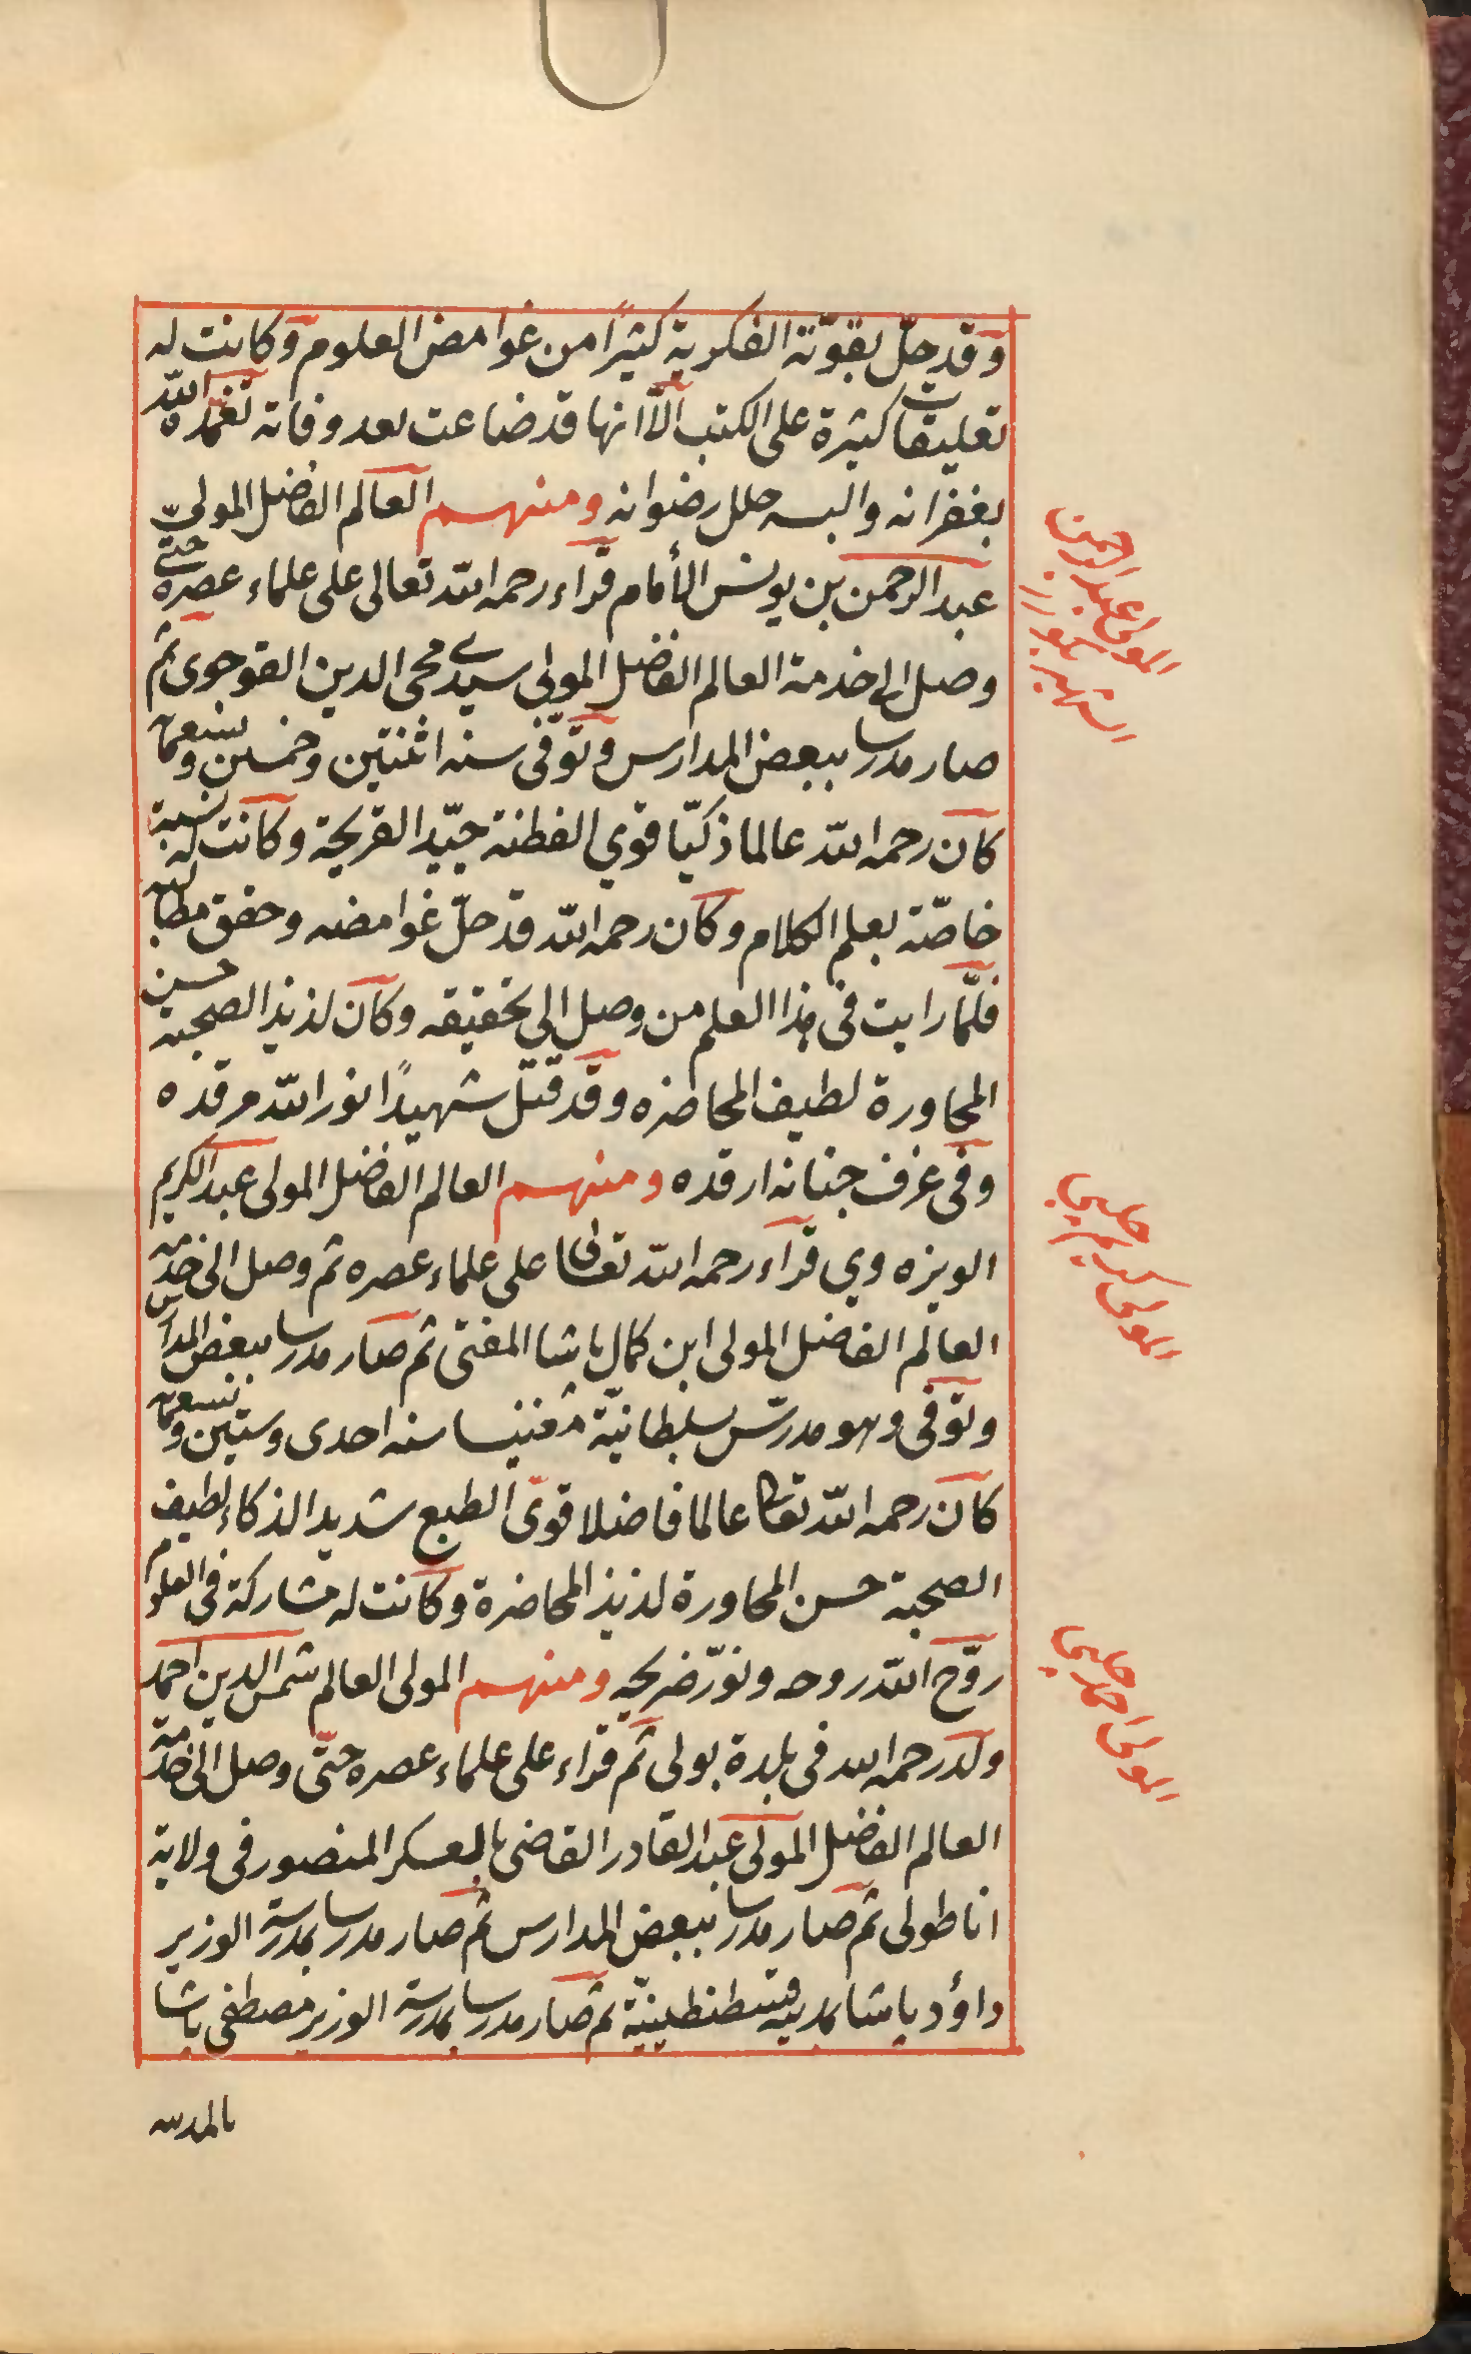 وقد حلّ بقوّته الفكرية كثيرًا من غوامض العلوم وكانت له
تعليقات كثيرة على الكتب الّا انها قد ضاعت بعد وفاته تغمّده الله
بغفرانه والبسه حلل رضوانه ومنهم العالم الفاضل المولى
عبد الرحمن بن يونس الأمام قراء رحمه الله تعالى على علماء عصره حتى
وصل الى خدمة العالم الفاضل المولى سيدي محي الدين القوجوى ثم
صار مدرسا ببعض المدارس وتوفّى سنه اثنتين وخمسين وتسعمائه
كان رحمه الله عالما ذكيّا قوي الفطنة جيّد القريحة وكانت له نسبة
خاصّة بعلم الكلام وكان رحمه الله قد حلّ غوامضه وحقق مطالبه
فلّما رايت فى هذا العلم من وصل الى تحقيقه وكان لذيذ الصحبة حسن
المحاورة لطيف المحاضره وقد قتل شهيدًا نور الله مرقده
وفى غرف جنانه ارقده ومنهم العالم الفاضل المولى عبد الكريم
الويزه وي قراء رحمه الله تعالى على علماء عصره ثم وصل الى خدمة
العالم الفاضل المولى ابن كمال باشا المفتى ثم صار مدرسا ببعض المدارس
وتوفى وهو مدرّس بسلطانيّة مغنيسا سنه احدى وستين وتسعمائه
كان رحمه الله تعالى عالما فاضلا قوى الطبع شديد الذكاء لطيف
الصحبة حسن المحاورة لذيذ المحاضرة وكانت له مشاركة فى العلوم
روّح الله روحه ونوّر ضريحه ومنهم المولى العالم شمس الدين احمد
ولد رحمه الله فى بلدة بولى ثم قراء على علماء عصره حتّى وصل الى خدمة
العالم الفاضل المولى عبد القادر القاضى بالعسكر المنصور فى ولاية
اناطولى ثم صار مدرسا ببعض المدارس ثم صار مدرسا بمدرسة الوزير
داؤد پاشا بمدينة قسطنطينيّة ثم صار مدرسا بمدرسة الوزير مصطفى پاشا
بالمدرسه
المولى عبد الرحمن
الشهير
المولى كريم چلبى
المولى احمد چلبى